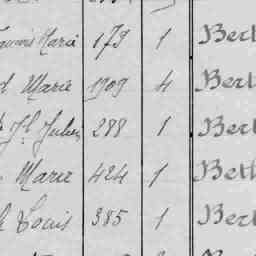 Marie 179 1 Bert
Marie 1909 4 Bert
Jh Julien 288 1 Bert
Marie 424 1 Beth
Louis 385 1 Bert